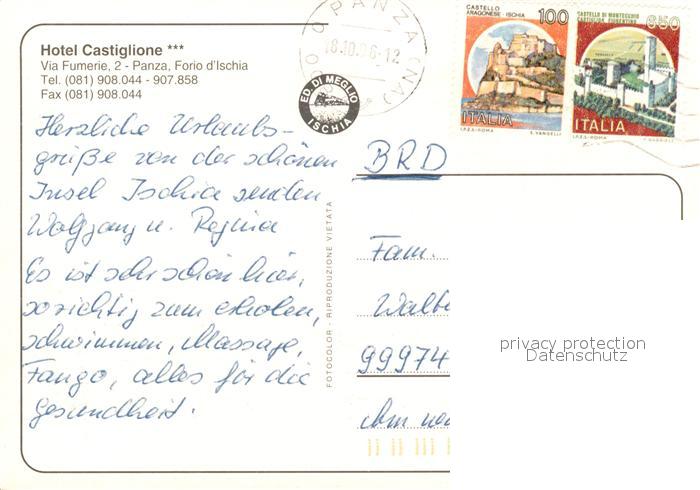 Hotel Castiglione ***
Via Fumerie, 2 - Panza, Forio d'Ischia
Tel. (081) 908.044 - 907.858
Fax (081) 908.044
Herzliche Urlaubs-
grüße von der schönen
Insel Ischia senden
Wolfgang u. Regina
Es ist sehr schön hier,
so richtig zum erholen,
schwimmen, Massage,
Fango, alles für die
Gesundheit.
FOTOCOLOR - RIPRODUZIONE VIETATA
ED. DI MEGLIO
ISCHIA
PANZA (NA)
CASTELLO
ARAGONESE - ISCHIA
100
ITALIA
I.P.Z.S.-ROMA
E. VANGELLI
CASTELLO DI MONTECCHIO
CASTIGLION FIORENTINO
650
ITALIA
I.P.Z.S.-ROMA
BRD
Fam.
99974
privacy protection
Datenschutz